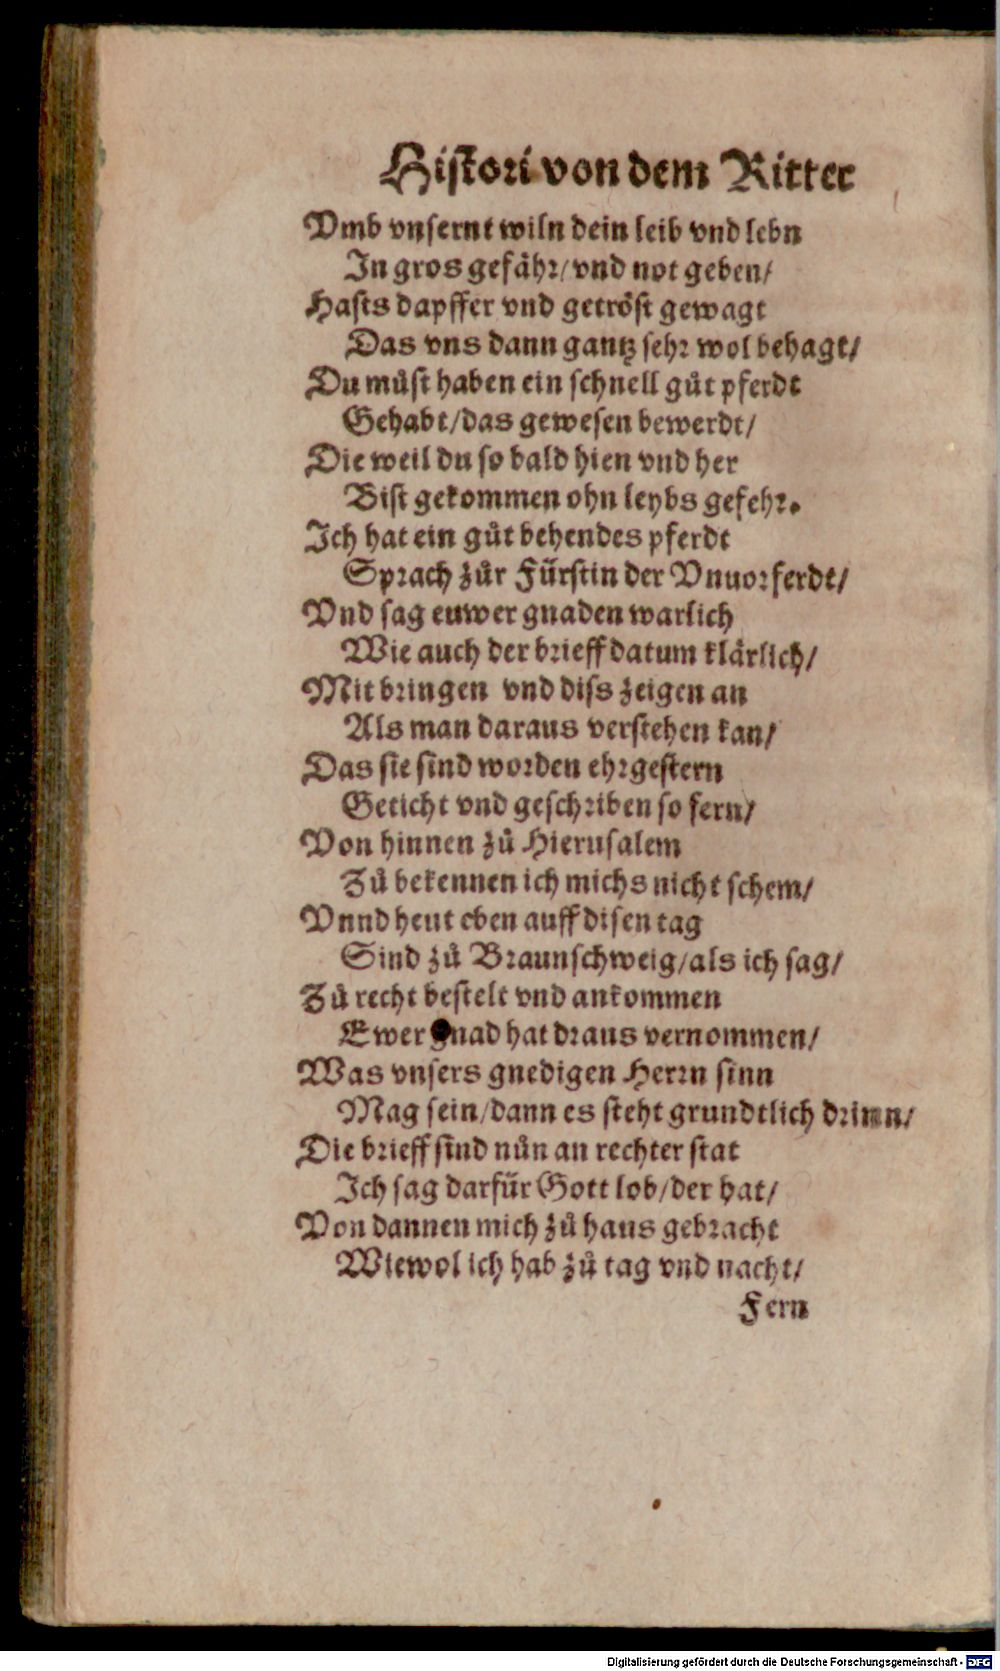 Histori von dem Ritter
Vmb vnsernt wiln dein leib vnd lebn
In gros gefähr/ vnd not geben/
Hasts dapffer vnd getröst gewagt
Das vns dann gantz sehr wol behagt/
Du můst haben ein schnell gůt pferdt
Gehabt/das gewesen bewerdt/
Die weil du so bald hien vnd her
Bist gekommen ohn leybs gefehr.
Ich hat ein gůt behendes pferdt
Sprach zůr Fürstin der Vnuorferdt/
Vnd sag euwer gnaden warlich
Wie auch der brieff datum klärlich/
Mit bringen vnd diss zeigen an
Als man daraus verstehen kan/
Das sie sind worden ehrgestern
Geticht vnd geschriben so fern/
Von hinnen zů Hierusalem
Zů bekennen ich michs nicht schem/
Vnnd heut eben auff disen tag
Sind zů Braunschweig/als ich sag/
Zů recht bestelt vnd ankommen
Ewer gnad hat draus vernommen/
Was vnsers gnedigen Herrn sinn
Mag sein/dann es steht grundtlich drinn/
Die brieff sind nůn an rechter stat
Ich sag darfür Gott lob/der hat/
Von dannen mich zů haus gebracht
Wiewol ich hab zů tag vnd nacht/
Fern
Digitalisierung gefördert durch die Deutsche Forschungsgemeinschaft - DFG